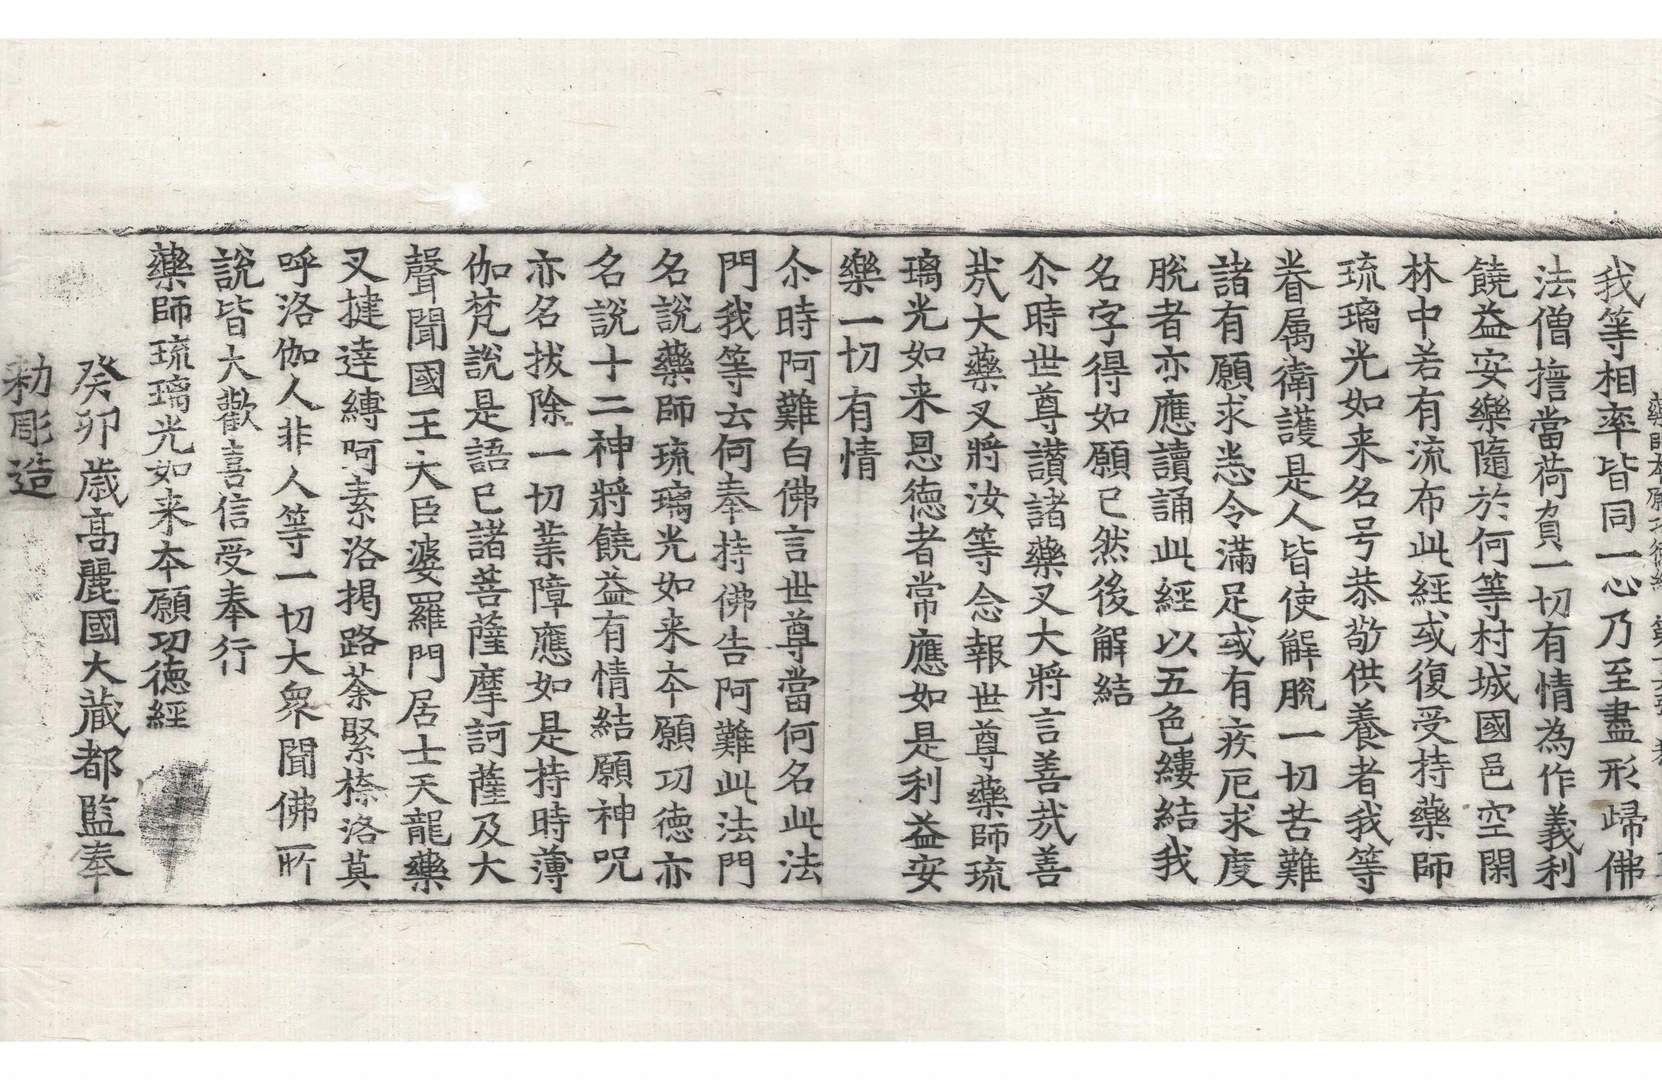 我等相率皆同一心乃至盡形歸佛
法僧擔當荷負一切有情為作義利
饒益安樂隨於何等村城國邑空閑
林中若有流布此經或復受持藥師
琉璃光如来名号恭敬供養者我等
眷属衛護是人皆使解脫一切苦難
諸有願求悉令滿足或有疾厄求度
脫者亦應讀誦此經以五色縷結我
名字得如願已然後解結
尒時世尊讃諸藥叉大將言善㢤善
㢤大藥叉將汝等念報世尊藥師琉
璃光如来恩德者常應如是利益安
樂一切有情
尒時阿難白佛言世尊當何名此法
門我等云何奉持佛告阿難此法門
名說藥師琉璃光如来夲願功德亦
名說十二神將饒益有情結願神呪
亦名拔除一切業障應如是持時薄
伽梵說是語已諸菩薩摩訶薩及大
聲聞國王大臣婆羅門居士天龍藥
叉揵達縛阿素洛揭路荼緊捺洛莫
呼洛伽人非人等一切大衆聞佛所
說皆大歡喜信受奉行
藥師琉璃光如来夲願功德經
癸卯歳高麗國大藏都監奉
勑彫造